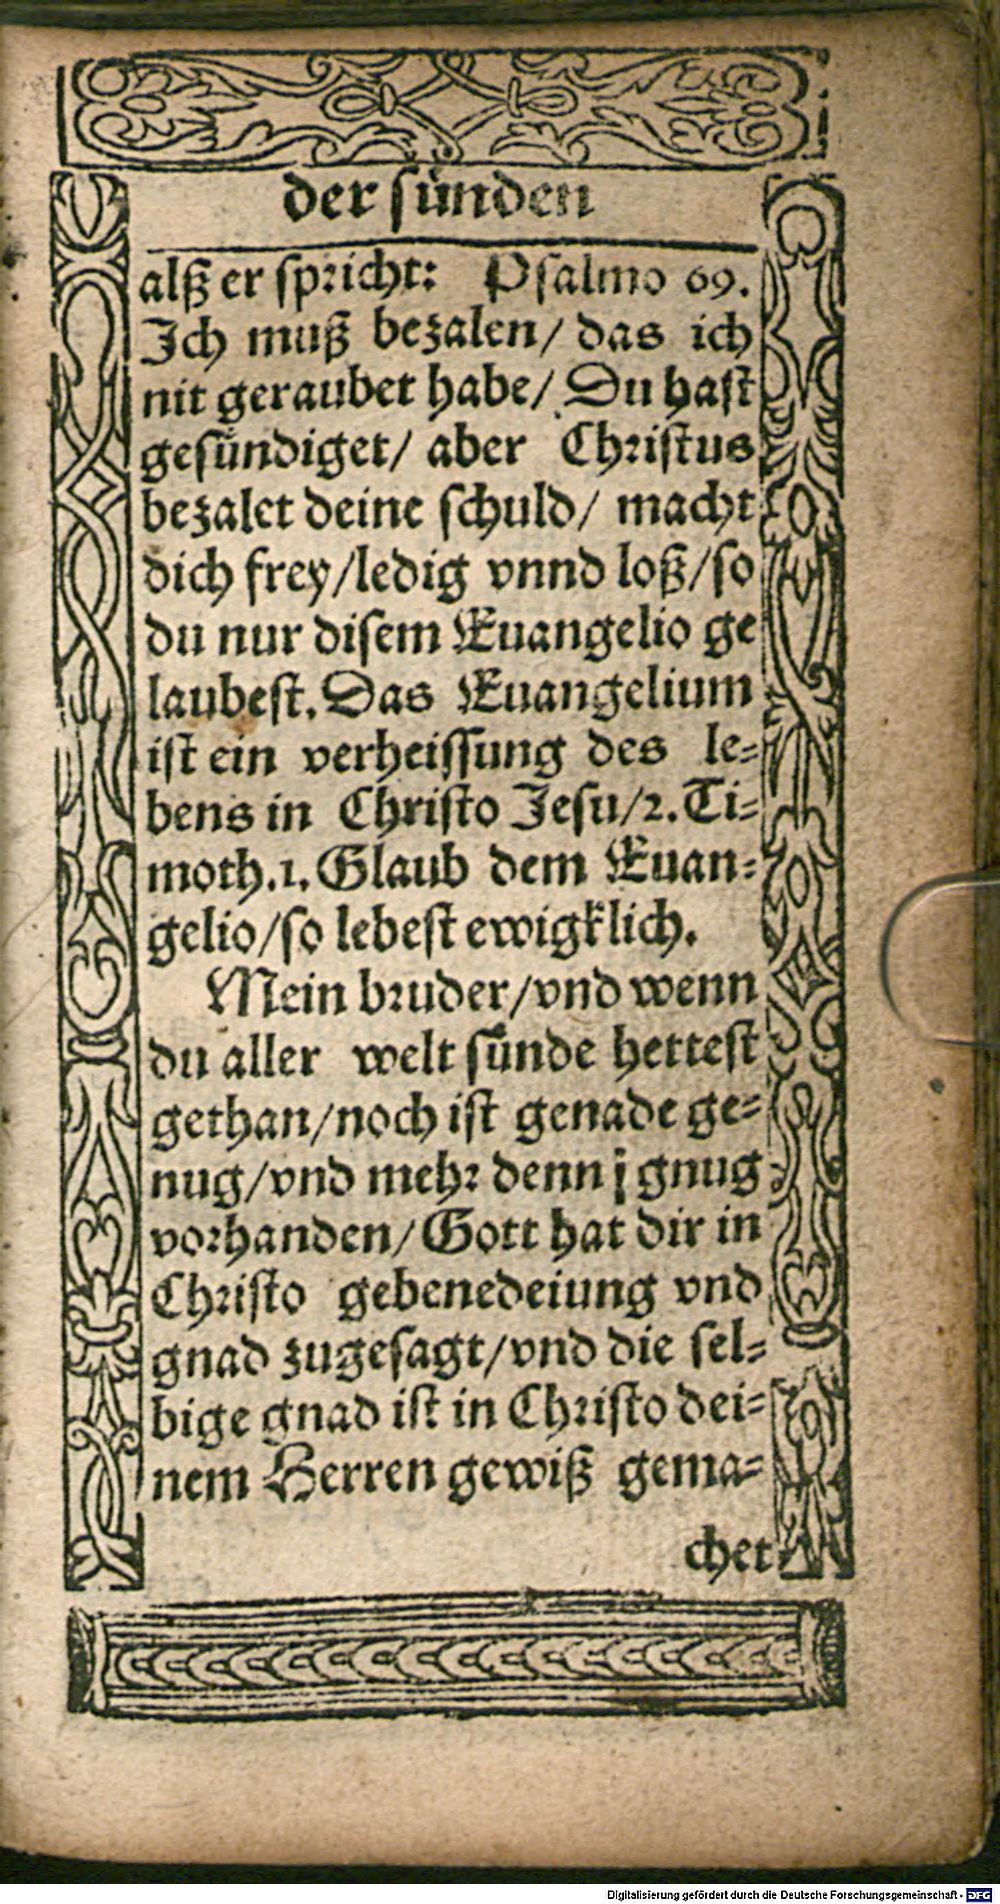 der sünden
alß er spricht: Psalmo 69.
Ich muß bezalen/ das ich
nit geraubet habe/ Du hast
gesündiget/ aber Christus
bezalet deine schuld/ macht
dich frey/ledig vnnd loß/so
du nur disem Euangelio ge
laubest. Das Euangelium
ist ein verheissung des le-
bens in Christo Jesu/2. Ti-
moth.1. Glaub dem Euan-
gelio/so lebest ewigklich.
Mein bruder/vnd wenn
du aller welt sünde hettest
gethan/noch ist genade ge-
nug/vnd mehr denn gnug
vorhanden/Gott hat dir in
Christo gebenedeiung vnd
gnad zugesagt/vnd die sel-
bige gnad ist in Christo dei-
nem Herren gewiß gema-
chet
Digitalisierung gefördert durch die Deutsche Forschungsgemeinschaft - DFG